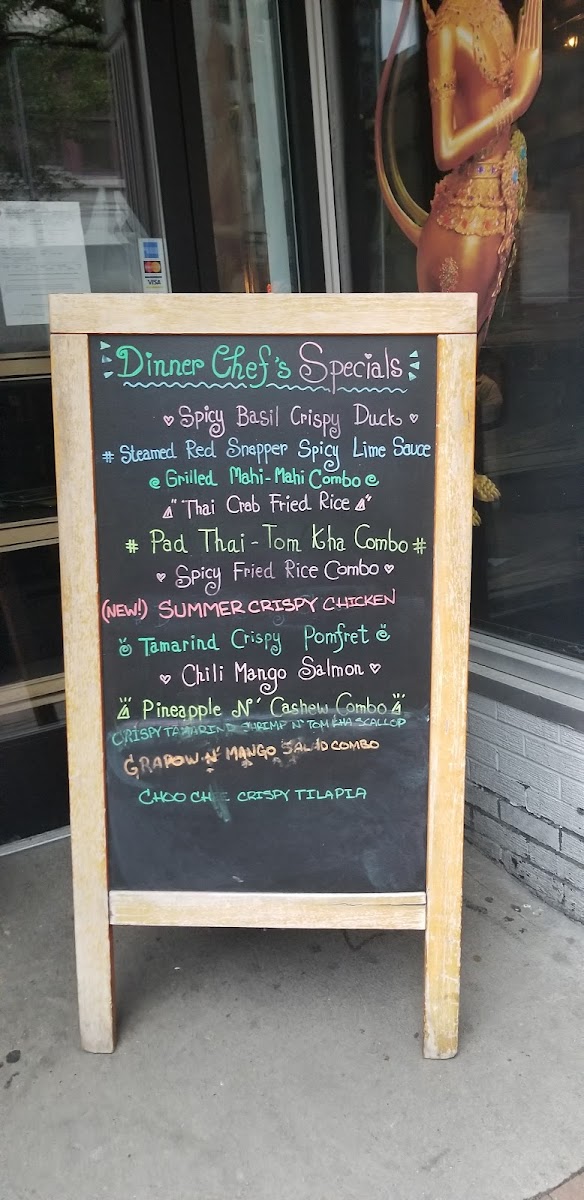 VISA
Dinner Chef's Specials
Spicy Basil Crispy Duck
# Steamed Red Snapper Spicy Lime Sauce
Grilled Mahi-Mahi Combo
Thai Crab Fried Rice
# Pad Thai-Tom Kha Combo #
Spicy Fried Rice Combo
(NEW!) SUMMER CRISPY CHICKEN
Tamarind Crispy Pomfret
Chili Mango Salmon
Pineapple N' Cashew Combo
CRISPY TAMARIND SHRIMP N' TOM KHA SCALLOP
GRAPOW N' MANGO SALAD COMBO
CHOO CHEE CRISPY TILAPIA